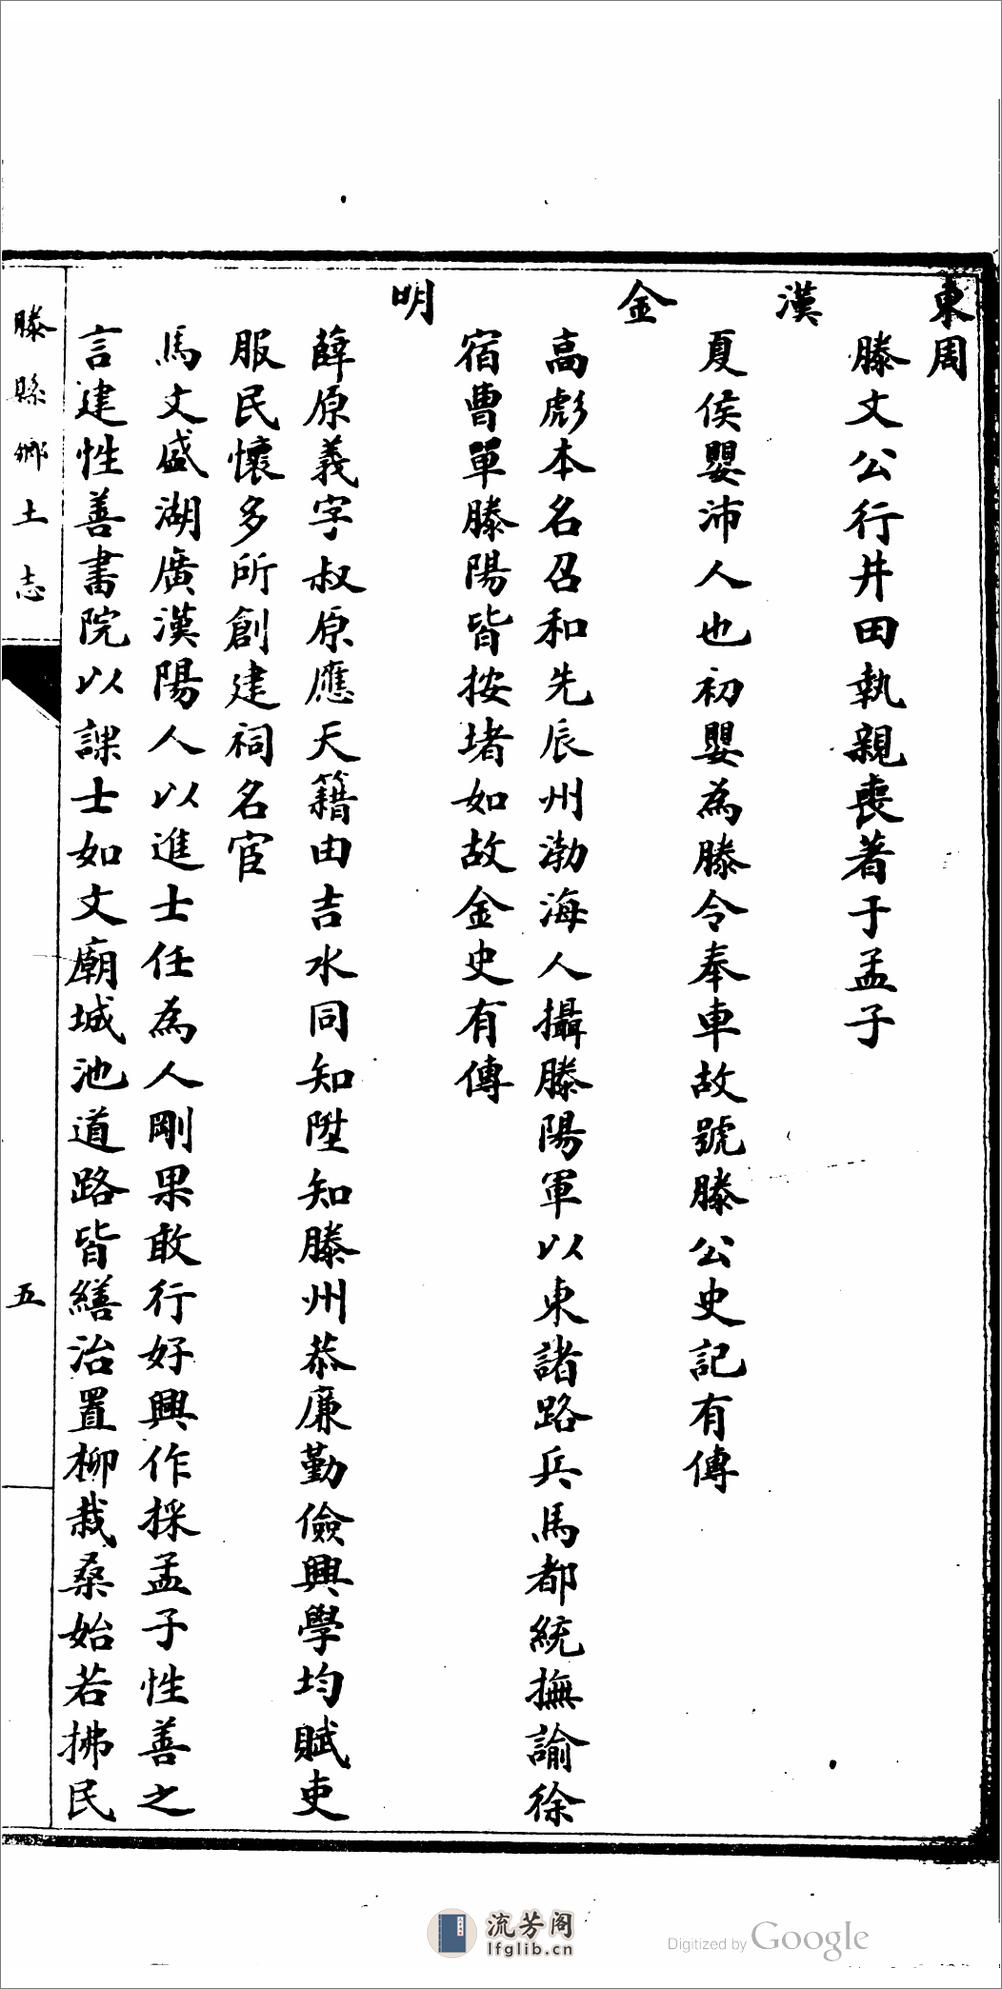 東周
滕文公行井田執親喪著于孟子
漢
夏侯嬰沛人也初嬰為滕令奉車故號滕公史記有傳
金
高彪本名召和先辰州渤海人攝滕陽軍以東諸路兵馬都統撫諭徐
宿曹單滕陽皆按堵如故金史有傳
明
薛原義字叔原應天籍由吉水同知陞知滕州恭廉勤儉興學均賦吏
服民懷多所創建祠名宦
馬文盛湖廣漢陽人以進士任為人剛果敢行好興作採孟子性善之
言建性善書院以課士如文廟城池道路皆繕治置柳栽桑始若拂民
滕縣鄉土志
五
流芳阁
lfglib.cn
Digitized by Google